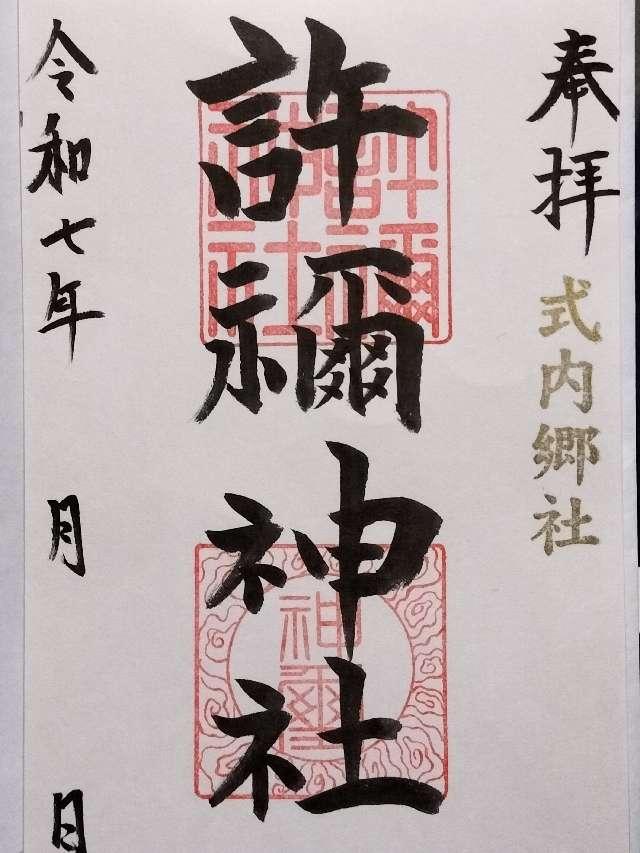 奉拝
式内郷社
許禰神社
許禰神社
神璽
令和七年　月　日